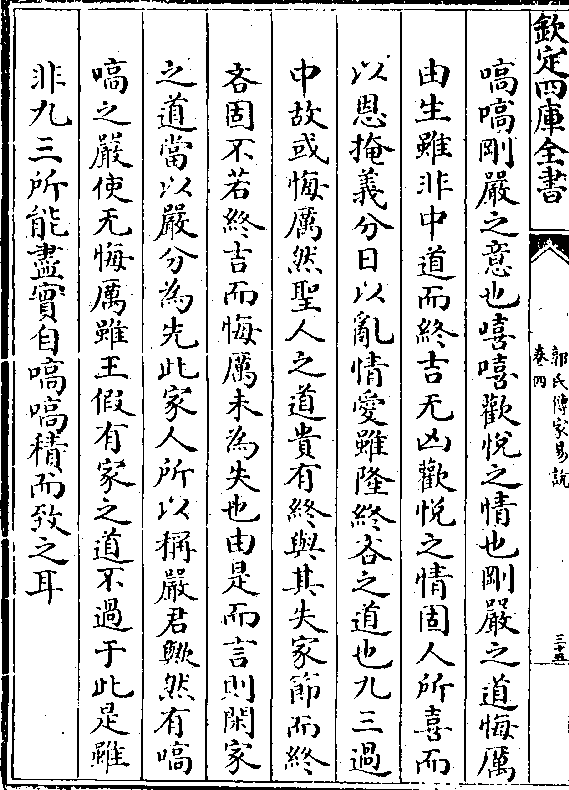 欽定四庫全書
郭氏傳家易說
卷四
三十五
嗃嗃剛嚴之意也嘻嘻歡悅之情也剛嚴之道悔厲
由生雖非中道而終吉无凶歡悅之情固人所喜而
以恩掩義分日以亂情愛雖隆終吝之道也九三過
中故或悔厲然聖人之道貴有終與其失家節而終
吝固不若終吉而悔厲未為失也由是而言則閑家
之道當以嚴分為先此家人所以稱嚴君歟然有嗃
嗃之嚴使无悔厲雖王假有家之道不過于此是雖
非九三所能盡實自嗃嗃積而致之耳